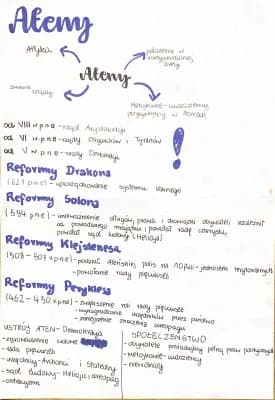 Ateny
Attyka
położenie w
Ateny
Metojkowie-cudzoziemcy
w Atenach
od VIII w.p.n.e - rządy Arystokracji
od VI w p.n.e - rządy Oligarchów i Tyranów
od V w p.n.e - rządy Demokracji
!
Reformy Drakona
(621 p.n.e) - uporządkowanie systemu karnego
Reformy Solona
(594 p.n.e) - umorzenie długów, prawa i obowiązki obywateli zależne
od posiadanego majątku, powołał radę czterystu,
powołał sąd ludowy (Heliaja)
Reformy Klejstenesa
(508-507 r.p.n.e) - podział Ateńskiej polis na 10 fyli - jednostek terytorialnych
- powołanie rady pięciuset
Reformy Peryklesa
(462-430 r.p.n.e) - zwiększenie roli rady pięciuset
- wynagradzanie urzędników przez państwo
- zmniejszenie znaczenia areopagu
USTRÓJ ATEN - Demokracja
SPOŁECZEŃSTWO
- zgromadzenie ludowe
- obywatele posiadający pełnię praw politycznych
- rada pięciuset
- metojkowie - cudzoziemcy
- urzędnicy - Archonci i Stratedzy
- niewolnicy
- sąd ludowy - Heliaja i areopag
- ostracyzm